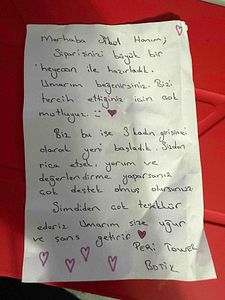 Merhaba Şkol Hanım,
Siparişinizi büyük bir
heyecan ile hazırladık.
Umarım beğenirsiniz. Bizi
tercih ettiğiniz için çok
mutluyuz. :)
Biz bu işe 3 kadın girişimci
olarak yeni başladık. Sizden
rica etsek, yorum ve
değerlendirme yaparsanız
çok destek olmuş olursunuz.
Şimdiden çok teşekkür
ederiz Umarım size uğur
ve şans getirir
PERİ TOWER
BUTİK